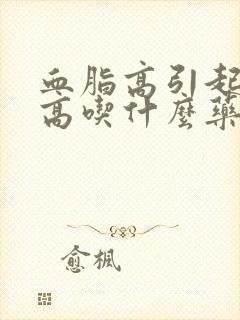 血脂高引起
高喫什麼藥
愈楓